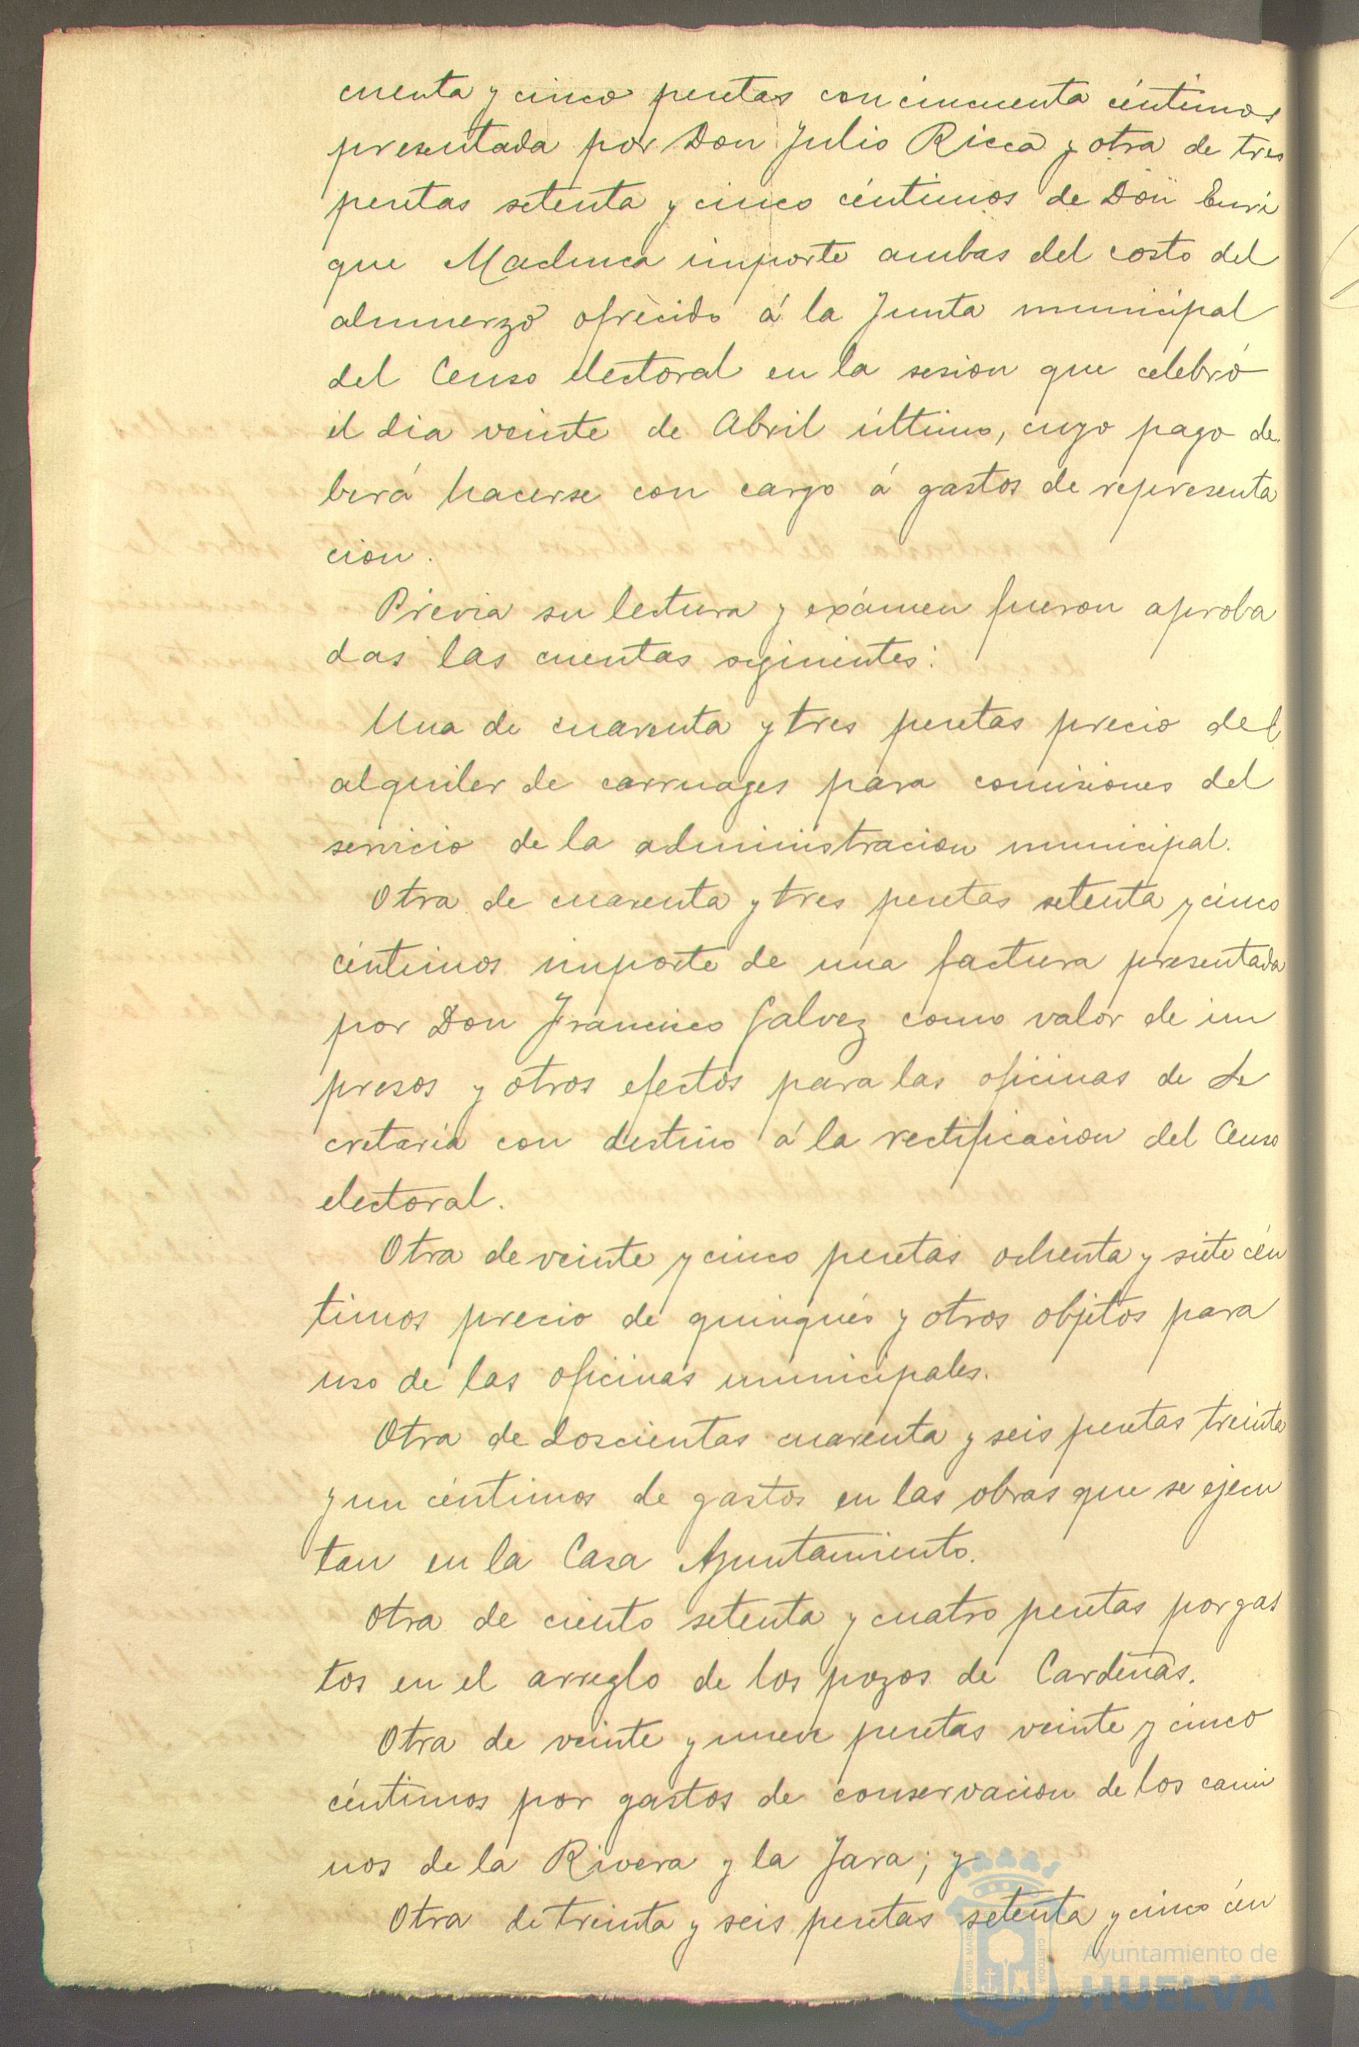 cuenta y cinco pesetas con cincuenta céntimos
presentada por Don Julio Ricca y otra de tres
pesetas setenta y cinco céntimos de Don Enri
que Macluca importe ambas del costo del
almuerzo ofrecido á la Junta municipal
del Censo electoral en la sesion que celebró
el dia veinte de Abril último, cuyo pago de
berá hacerse con cargo á gastos de representa
cion.
Previa su lectura y exámen fueron aproba
das las cuentas siguientes:
Una de cuarenta y tres pesetas precio del
alquiler de carruages para comisiones del
servicio de la administracion municipal.
Otra de cuarenta y tres pesetas setenta y cinco
céntimos importe de una factura presentada
por Don Francisco Galvez como valor de im
presos y otros efectos para las oficinas de Se
cretaría con destino á la rectificacion del Censo
electoral.
Otra de veinte y cinco pesetas ochenta y siete cén
timos precio de quinqués y otros objetos para
uso de las oficinas municipales.
Otra de doscientas cuarenta y seis pesetas treinta
y un céntimos de gastos en las obras que se ejecu
tan en la Casa Ayuntamiento.
Otra de ciento setenta y cuatro pesetas por gas
tos en el arreglo de los pozos de Cardeñas.
Otra de veinte y nueve pesetas veinte y cinco
céntimos por gastos de conservacion de los cami
nos de la Rivera y la Jara; y
Otra de treinta y seis pesetas setenta y cinco cén
Ayuntamiento de
HUELVA